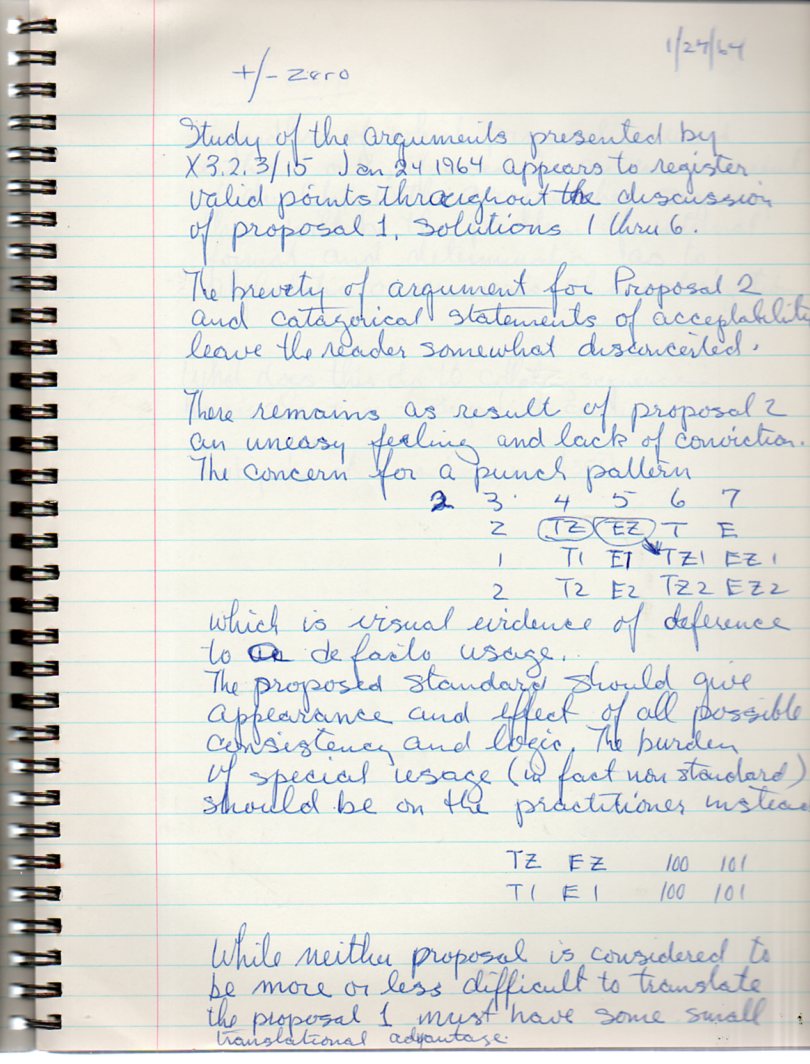 1/27/64
+/- zero
Study of the arguments presented by
X3.2.3/15 Jan 24 1964 appears to register
valid points throughout the discussion
of proposal 1, solutions 1 thru 6.
The brevety of argument for Proposal 2
and catagorical statements of acceptability
leave the reader somewhat disconcerted.
There remains as result of proposal 2
an uneasy feeling and lack of conviction.
The concern for a punch pattern
2 3 4 5 6 7
Z TZ EZ T E
1 T1 E1 TZ1 EZ1
2 T2 E2 TZ2 EZ2
which is visual evidence of deference
to de facto usage.
The proposed standard should give
appearance and effect of all possible
consistency and logic. The burden
of special usage (in fact non standard)
should be on the practitioner instead
TZ EZ 100 101
T1 E1 100 101
While neither proposal is considered to
be more or less difficult to translate
the proposal 1 must have some small
translational advantage.